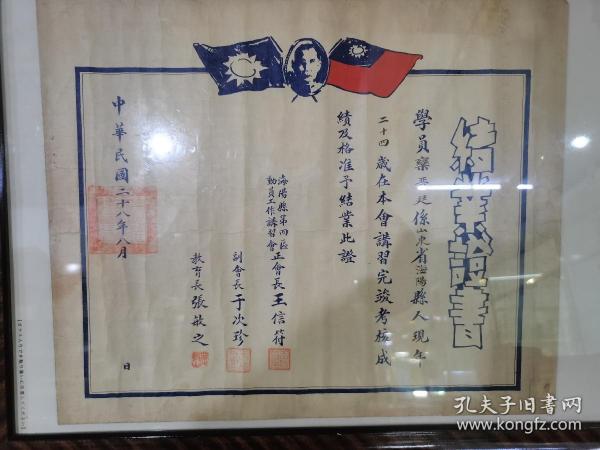 結業證書
學員欒丕廷係山東省海陽縣人現年
二十四歲在本會講習完竣考核成
績及格准予結業此證
海陽縣第四區
動員工作講習會
正會長王信符
副會長于次珍
教育長張敬之
中華民國二十八年八月
日
孔夫子旧书网
www.kongfz.com